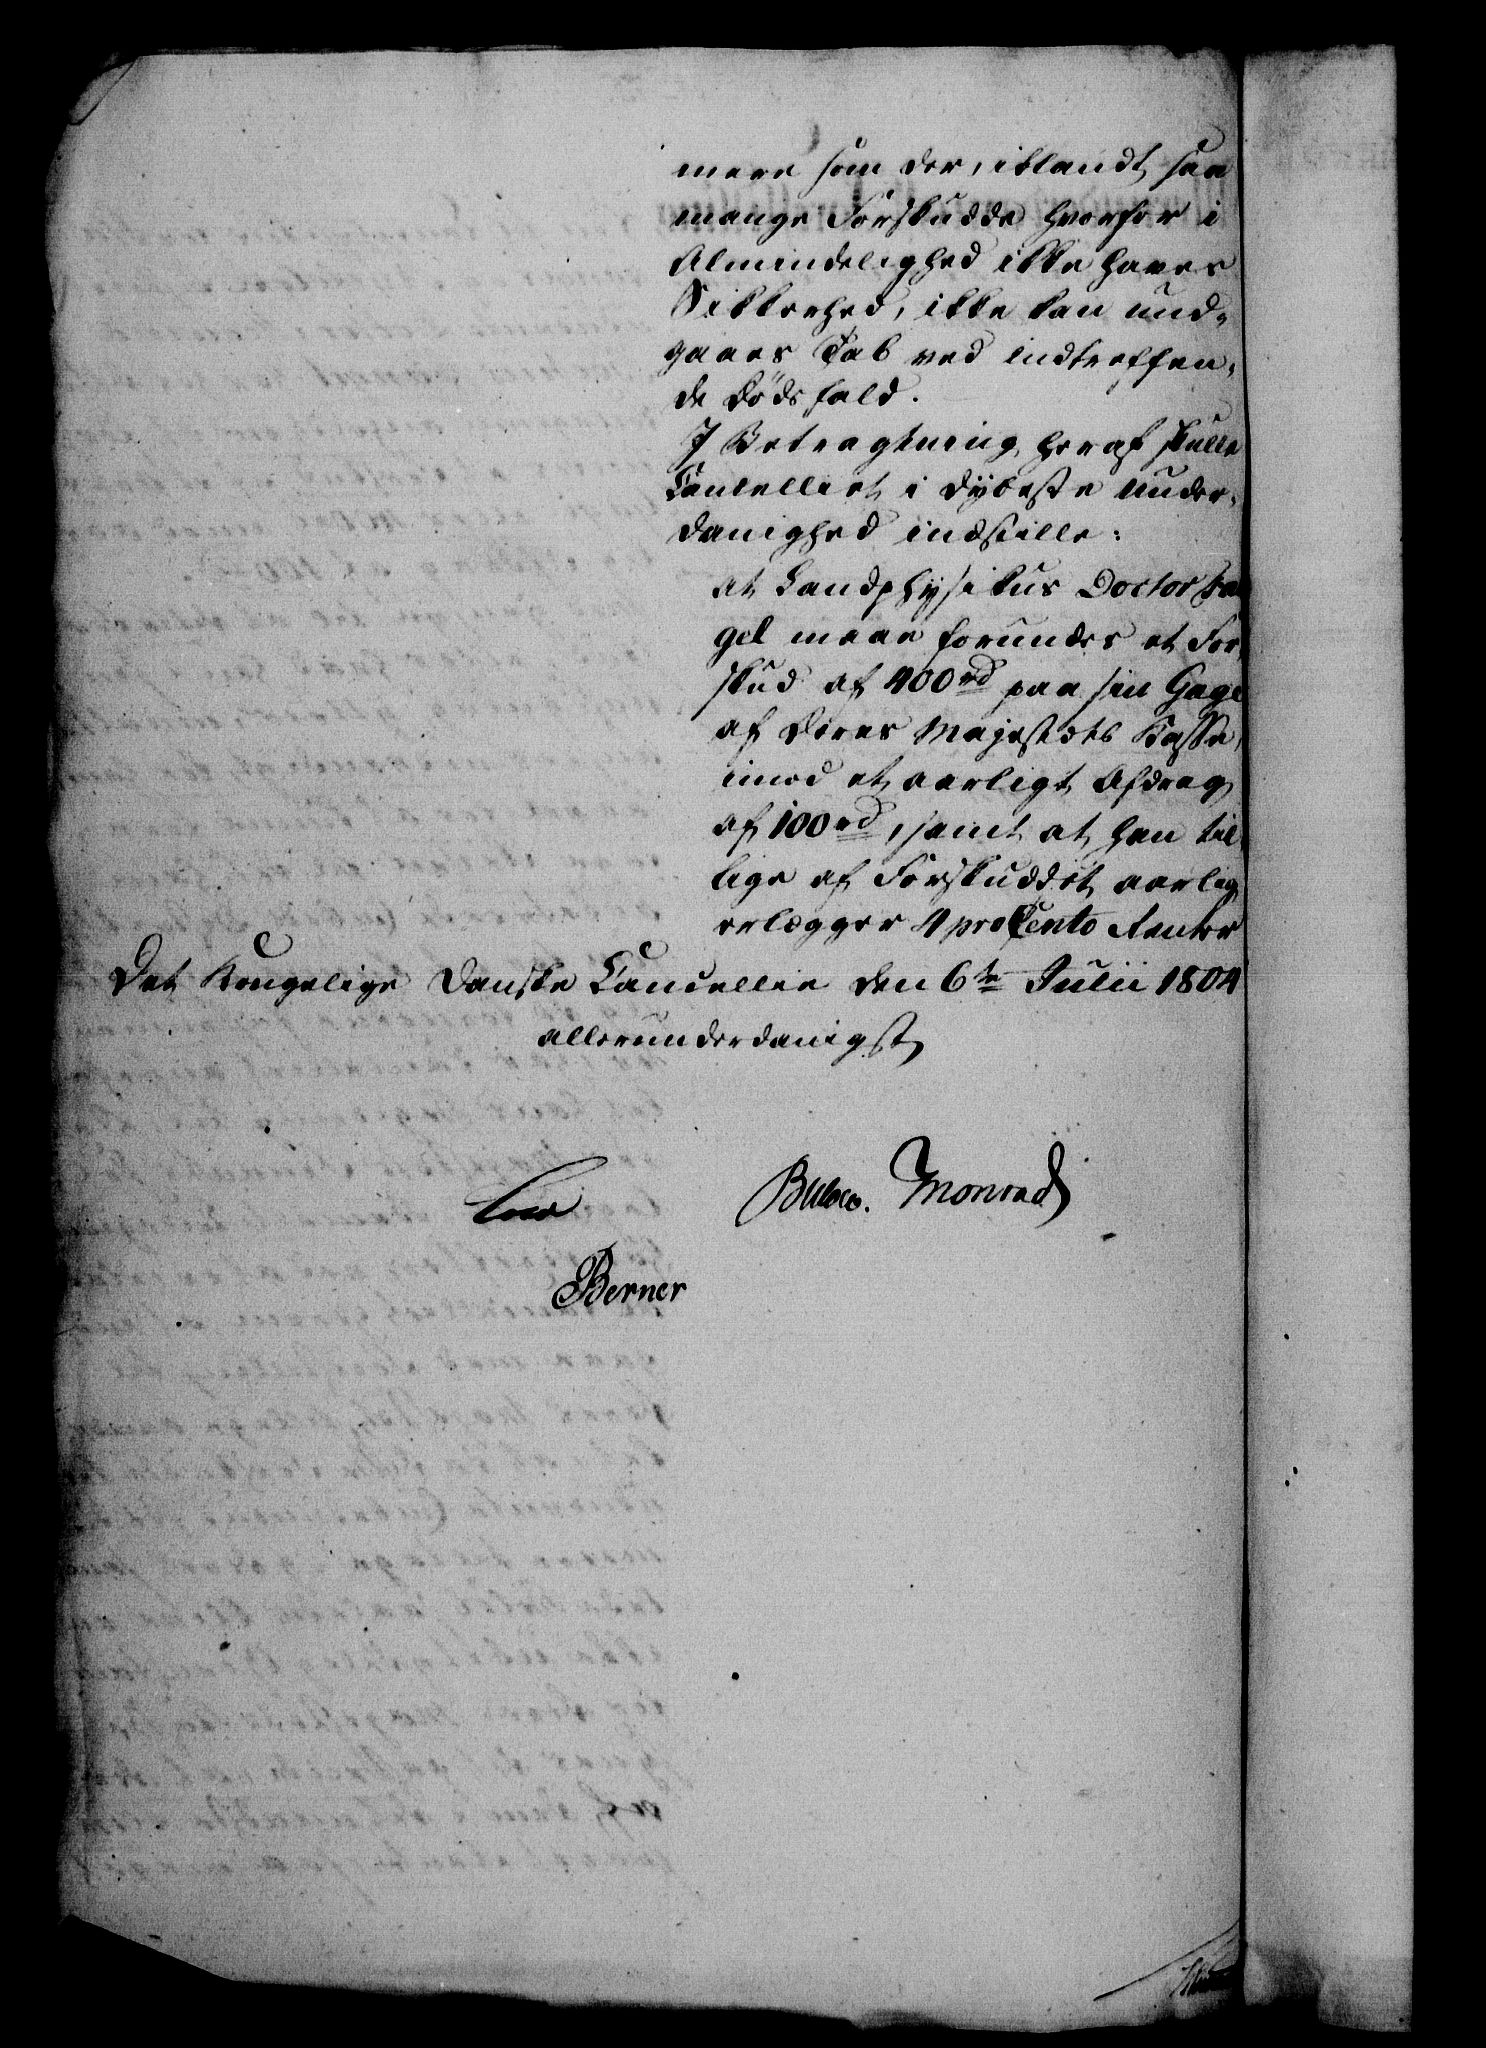 mere som der, iblandt saa
mange Forskudde hvorfor i
Almindelighed ikke haves
Sikkerhed, ikke kan und-
gaaes Tab ved indtreffen-
de Dødsfald.
I Betragtning heraf skulle
Cancelliet i dybeste Under-
danighed indstille:
at Landphysikus Doctor
gel maae forundes et For-
skud af 400 rd paa sin Gage
af Deres Majestæts Kasse,
imod et aarligt Afdrag
af 100 rd, samt at han til-
lige af Forskuddet aarlig
erlægger 4 pro Cento Renter
Det Kongelige Danske Cancellie den 6te Julii 1804
allerunderdanigst
Bülow. Monrad
Berner